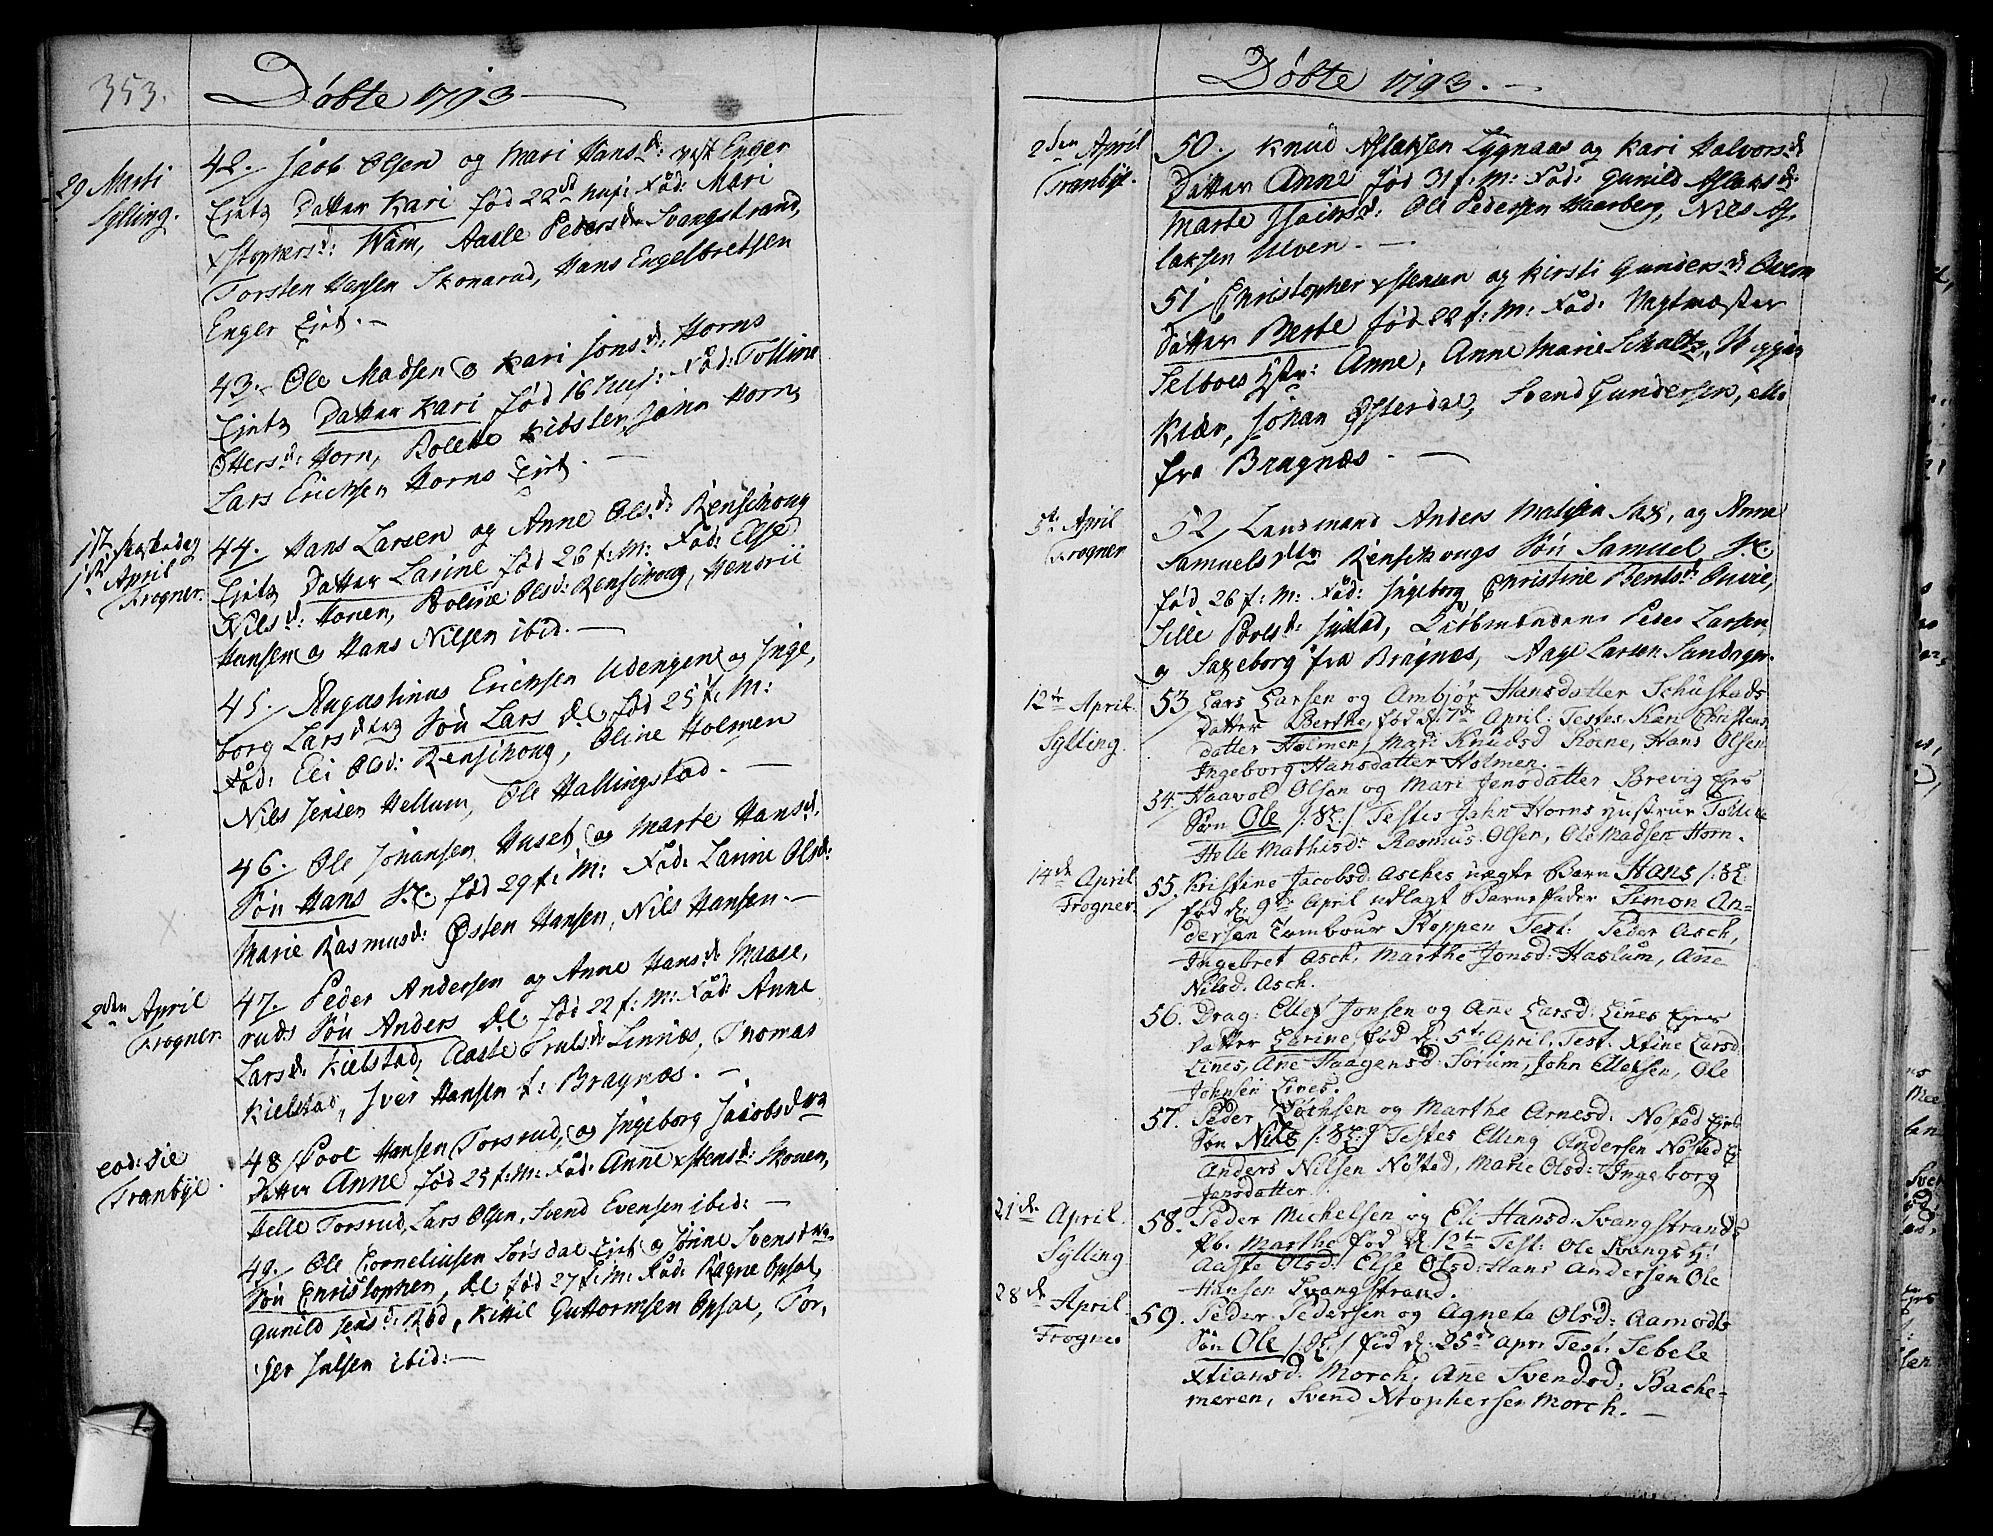 353.
Döbte 1793
29 Marti
Sylling.
42. Jacob Olsen og Mari Hansd: vest Enger
Eiets Datter Kari fød 22d huj: Fad: Mari
xstophersd: Wam, Aasle Pedersdr Svangstrand,
Torsten Hansen Skonarud, Hans Engelbretsen
Enger Eiet. —
43. Ole Madsen og Kari Jonsd: Horns
Eiets Datter Kari fød 16 huj: Fad: Tolline
Ottersd: Horn, Bolette Kibsler, John Horn,
Lars Ericksen Horns Eiet. —
1ste April
Frogner.
44. Hans Larsen og Anne Olsd: Rensihoug
Eiets Datter Larine fød 26 f: M: Fad: Else
Nilsd: Honen, Boline Olsd: Rensihoug,
Hansen og Hans Nilsen ibid. —
45. Augustinus Ericksen Udengen og Inge,
borg Larsdtrs Sön Lars fød 25 f: M:
Fad: Eli Olsd: Rensihoug, Oline Holmen
Nils Jensen Hellum, Ole Hallingstad. —
46. Ole Johansen Huset, og Marte Hansd.
Sön Hans fød 29 f: M: Fad: Larine Olsd:
Marie Rasmusd: Østen Hansen, Nils Hansen. —
2den April
Frogner.
47. Peder Andersen og Anne Hansd: Maase,
ruds Sön Anders fød 22 f: M: Fad: Anne
Larsd: Kielstad, Aaste Trulsd: Linnæs, Thomas
Kielstad, Iver Hansen f: Bragnæs. —
eod: die
Tranbÿe.
48 Povel Hansen Torsrud, og Ingeborg Jacobsdtrs
Datter Anne fød 25 f: M: Fad: Anne xstensd: Skouen,
Helle Torsrud, Lars Olsen, Svend Evensen ibid: —
49. Ole Corneliusen Sørsdal Eiet og Jönne Svensdtrs
Sön Christopher, fød 27 f: M: Fad: Ragne Opsal,
Gunild Jensd: Röd, Kittil Guttormsen Opsal, Tor,
ger Julsen ibid: —
Döbte 1793. —
2den April
Tranbÿe.
50. Knud Aslaksen Lygnaas og Kari Halvorsd
Datter Anne fød 31 f: M: Fad: Gunild Aslaksd:
Marte Ole Pedersen Haarberg, Nils As,
laksen Ulven. —
51 Christopher xstensen og Kirsti Gundersd
Datter Berte fød 22 f: M: Fad: Vegtmæster
Selboes Hstr: Anne, Anne Marie Schultz,
Kiær, Johan Østerdal, Svend Gundersen, alle
fra Bragnæs. —
5te April
Frogner
52 Lensmand Anders Matisen Sax, og Anne
Samuelsdtr Rensihougs Sön Samuel
fød 26 f: M: Fad: Ingeborg Christine Bentsd:
Sille Povlsd: Justad, Kiöbmændene Peder Larsen
og Saxeborg fra Bragnæs, Aage Larsen Sandager.
12te April.
Sylling.
53 Lars Larsen og Ambjör Hansdatter Schustads
Datter Berthe, fød d: 7de April. Testes Kari Christens
datter Holmen, Mari Knudsd Roine, Hans Olsen
Ingeborg Hansdatter Holmen. —
54. Haavold Olsen og Mari Jensdatter Brevig Ejes
Søn Ole Testes John Horns Hustrue Tolline
Helle Mathisd: Rasmus Olsen, Ole Madsen Horn.
14de April
Frogner.
55. Kristine Jacobsd: Asches uægte Barn Hans
fød d: 9de April udlagt Barnefader Simon An-
dersen Tambour Koppen Test: Peder Asch,
Ingebret Asch, Marthe Jonsd: Haslum, Ane
Nilsd: Asch.
56. Drag: Ellef Jonsen og Ane Larsd: Lines Ejes
Datter Larine, fød d: 5te April, Test: Xtine Larsd:
Lines, Ane Haagensd: Sørum, John Ellefsen, Ole
Johnsen Lines.
57. Peder Sachsen og Marthe Arnesd: Nøstad Eiet
Søn Nils Testes Elling Andersen Nøstad
Anders Nilsen Nøstad, Marie Olsd: Ingeborg
Jensdatter
21de April.
Sylling
58. Peder Michelsen og Eli Hansd: Svangstrands
Pb. Marthe fød d. 12te Test: Ole Svangs
Aaste Olsd: Else Olsd: Hans Andersen Ole
Hansen Svangstrand.
28de April
Frogner
59. Peder Pedersen og Agnete Olsd: Aamodts
Søn Ole fød d: 25de Apr: Test: Sebele
Xtiansd: Morch, Ane Svendsd: Bache-
meren, Svend Xtophersen Morch. —